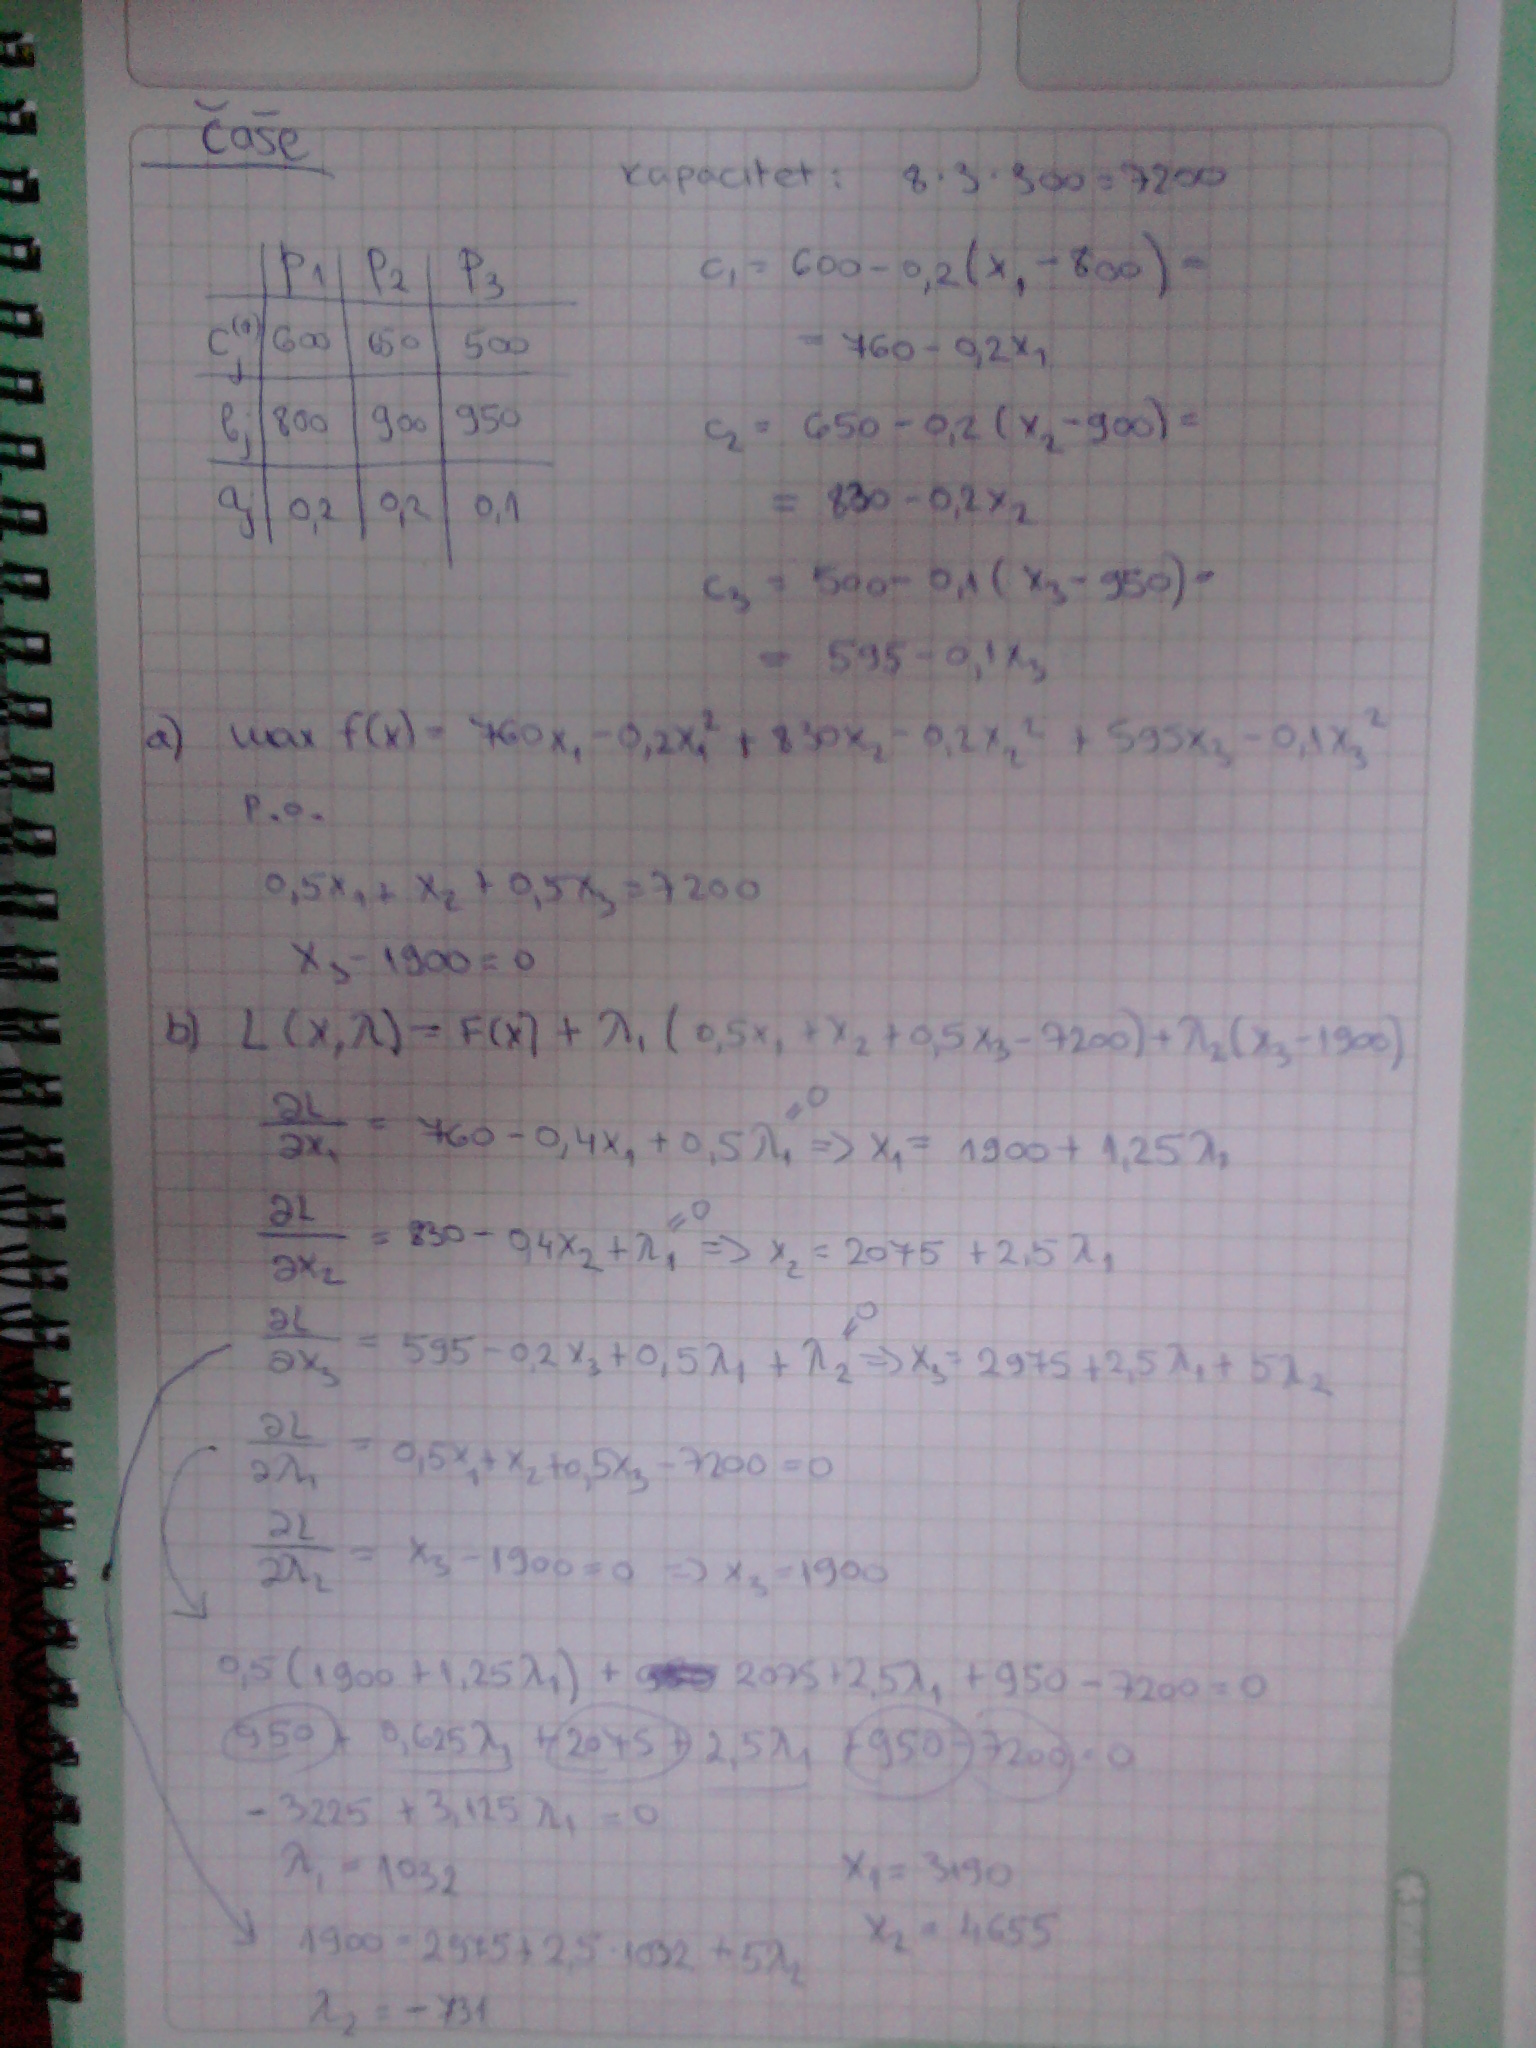 Čaše
kapacitet: 8·3·300=7200
P1 P2 P3
Cj(0) 600 650 500
lj 800 900 950
qj 0,2 0,2 0,1
c₁ = 600-0,2(x₁-800) =
= 760-0,2x₁
c₂ = 650-0,2(x₂-900) =
= 830-0,2x₂
c₃ = 500-0,1(x₃-950) =
= 595-0,1x₃
a) max f(x) = 760x₁-0,2x₁²+830x₂-0,2x₂²+595x₃-0,1x₃²
P.O.
0,5x₁+x₂+0,5x₃=7200
x₃-1900=0
b) L(x,λ)=F(x)+λ₁(0,5x₁+x₂+0,5x₃-7200)+λ₂(x₃-1900)
∂L/∂x₁ = 760-0,4x₁+0,5λ₁=0 => x₁= 1900+1,25λ₁
∂L/∂x₂ = 830-0,4x₂+λ₁=0 => x₂=2075+2,5λ₁
∂L/∂x₃ = 595-0,2x₃+0,5λ₁+λ₂=0 => x₃=2975+2,5λ₁+5λ₂
∂L/∂λ₁ = 0,5x₁+x₂+0,5x₃-7200=0
∂L/∂λ₂ = x₃-1900=0 => x₃=1900
0,5(1900+1,25λ₁)+ 2075+2,5λ₁+950-7200=0
950+0,625λ₁+2075+2,5λ₁+950-7200=0
-3225+3,125λ₁=0
λ₁=1032 x₁=3190
x₂=4655
1900=2975+2,5·1032+5λ₂
λ₂=-731